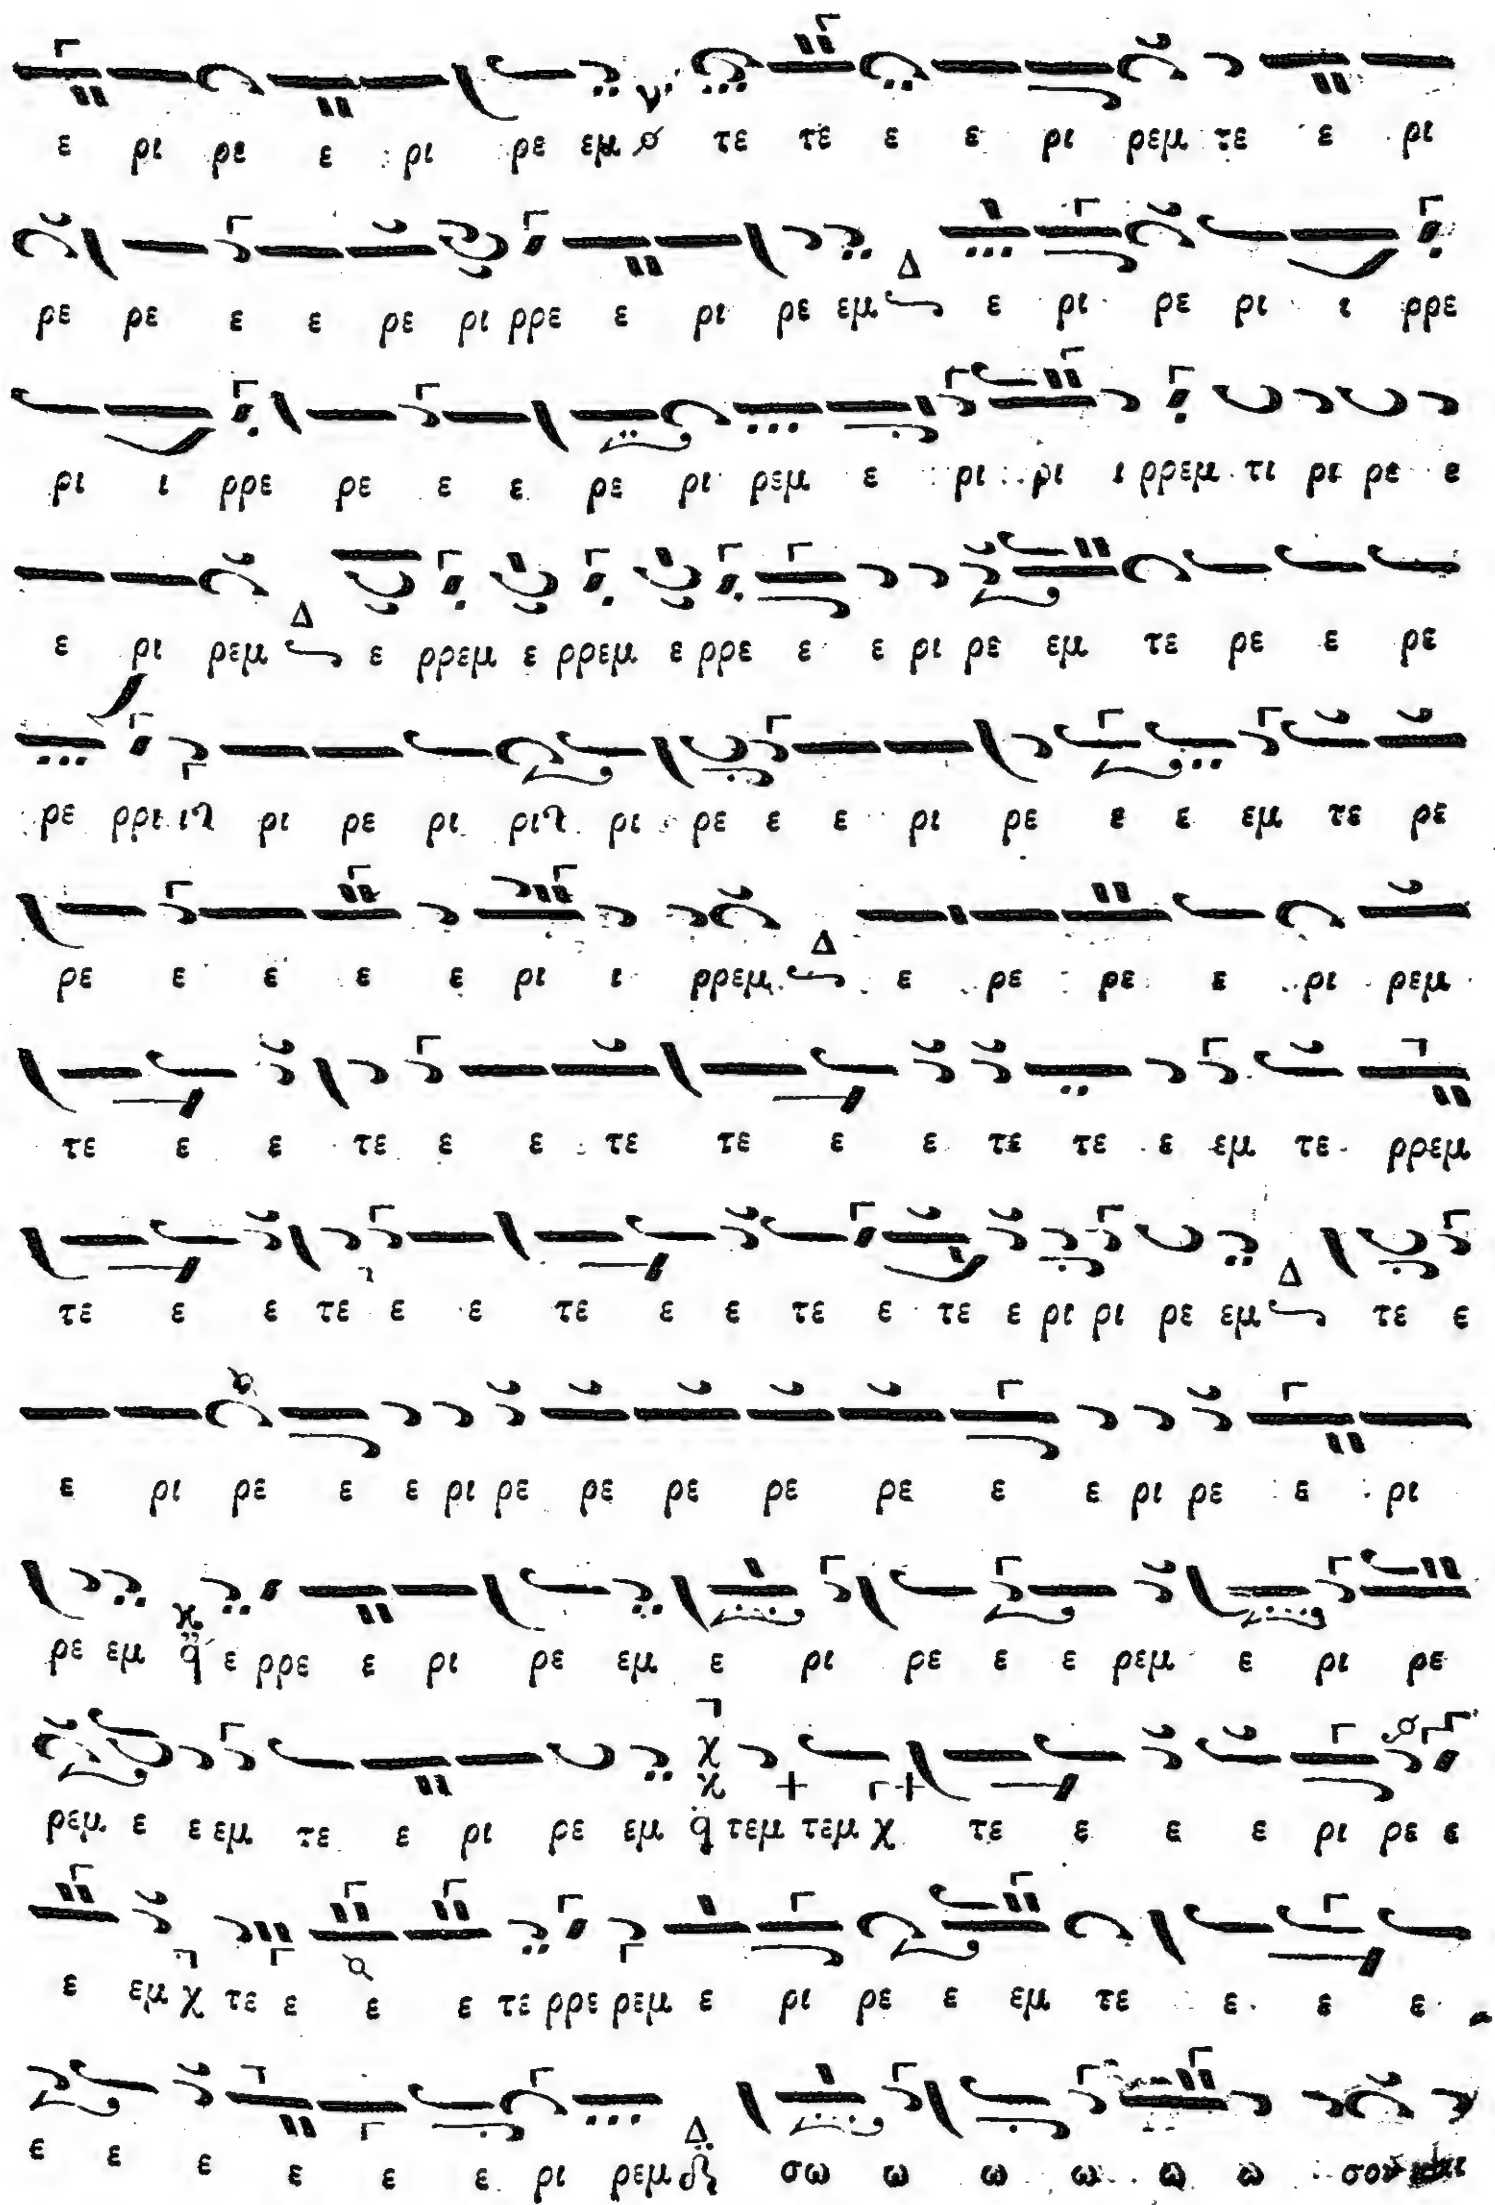 ε ρι ρε ε ρι ρε εμ τε τε ε ε ρι ρεμ τε ε ρι
ρε ρε ε ε ρε ρι ρρε ε ρι ρε εμ Δ ε ρι ρε ρι ι ρρε
ρι ι ρρε ρε ε ε ρε ρι ρεμ ε ρι ρι ι ρρεμ τι ρι ρε ε
ε ρι ρεμ Δ ε ρρεμ ε ρρεμ ε ρρε ε ε ρι ρε εμ τε ρε ε ρε
ρε ρρι ρι ρε ρι ρι ρε ε ε ρι ρε ε ε εμ τε ρε
ρε ε ε ε ε ρι ι ρρεμ Δ ε ρε ρε ε ρι ρεμ
τε ε ε τε ε ε τε τε ε ε τε τε ε εμ τε ρρεμ
τε ε ε τε ε ε τε ε ε τε ε τε ε ρι ρι ρε εμ Δ τε ε
ε ρι ρε ε ε ρι ρε ρε ρε ρε ρε ε ε ρι ρε ε ρι
ρε εμ q ε ρρε ε ρι ρε εμ ε ρι ρε ε ε ρεμ ε ρι ρε
ρεμ ε ε εμ τε ε ρι ρε εμ q τεμ τεμ χ τε ε ε ε ρι ρε ε
ε εμ χ τε ε ε ε τε ρρε ρεμ ε ρι ρε ε εμ τε ε ε ε
ε ε ε ε ε ε ρι ρεμ Δ σω ω ω ω ω ω